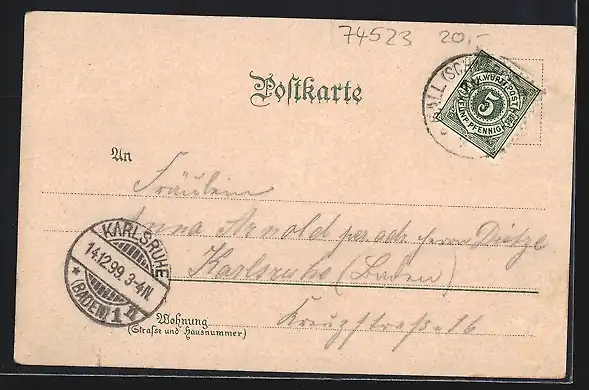 74523 20,-
Postkarte
HALL (SCH
K. WÜRTT. POST
5
FÜNF PFENNIG
An
Fräulein
Anna Arnold per adr. Herrn Dietze
Karlsruhe (Baden)
KARLSRUHE
14.12.99. 3-4N.
* (BADEN) 1
Wohnung
(Straße und Hausnummer)
Kreuzstraße 16